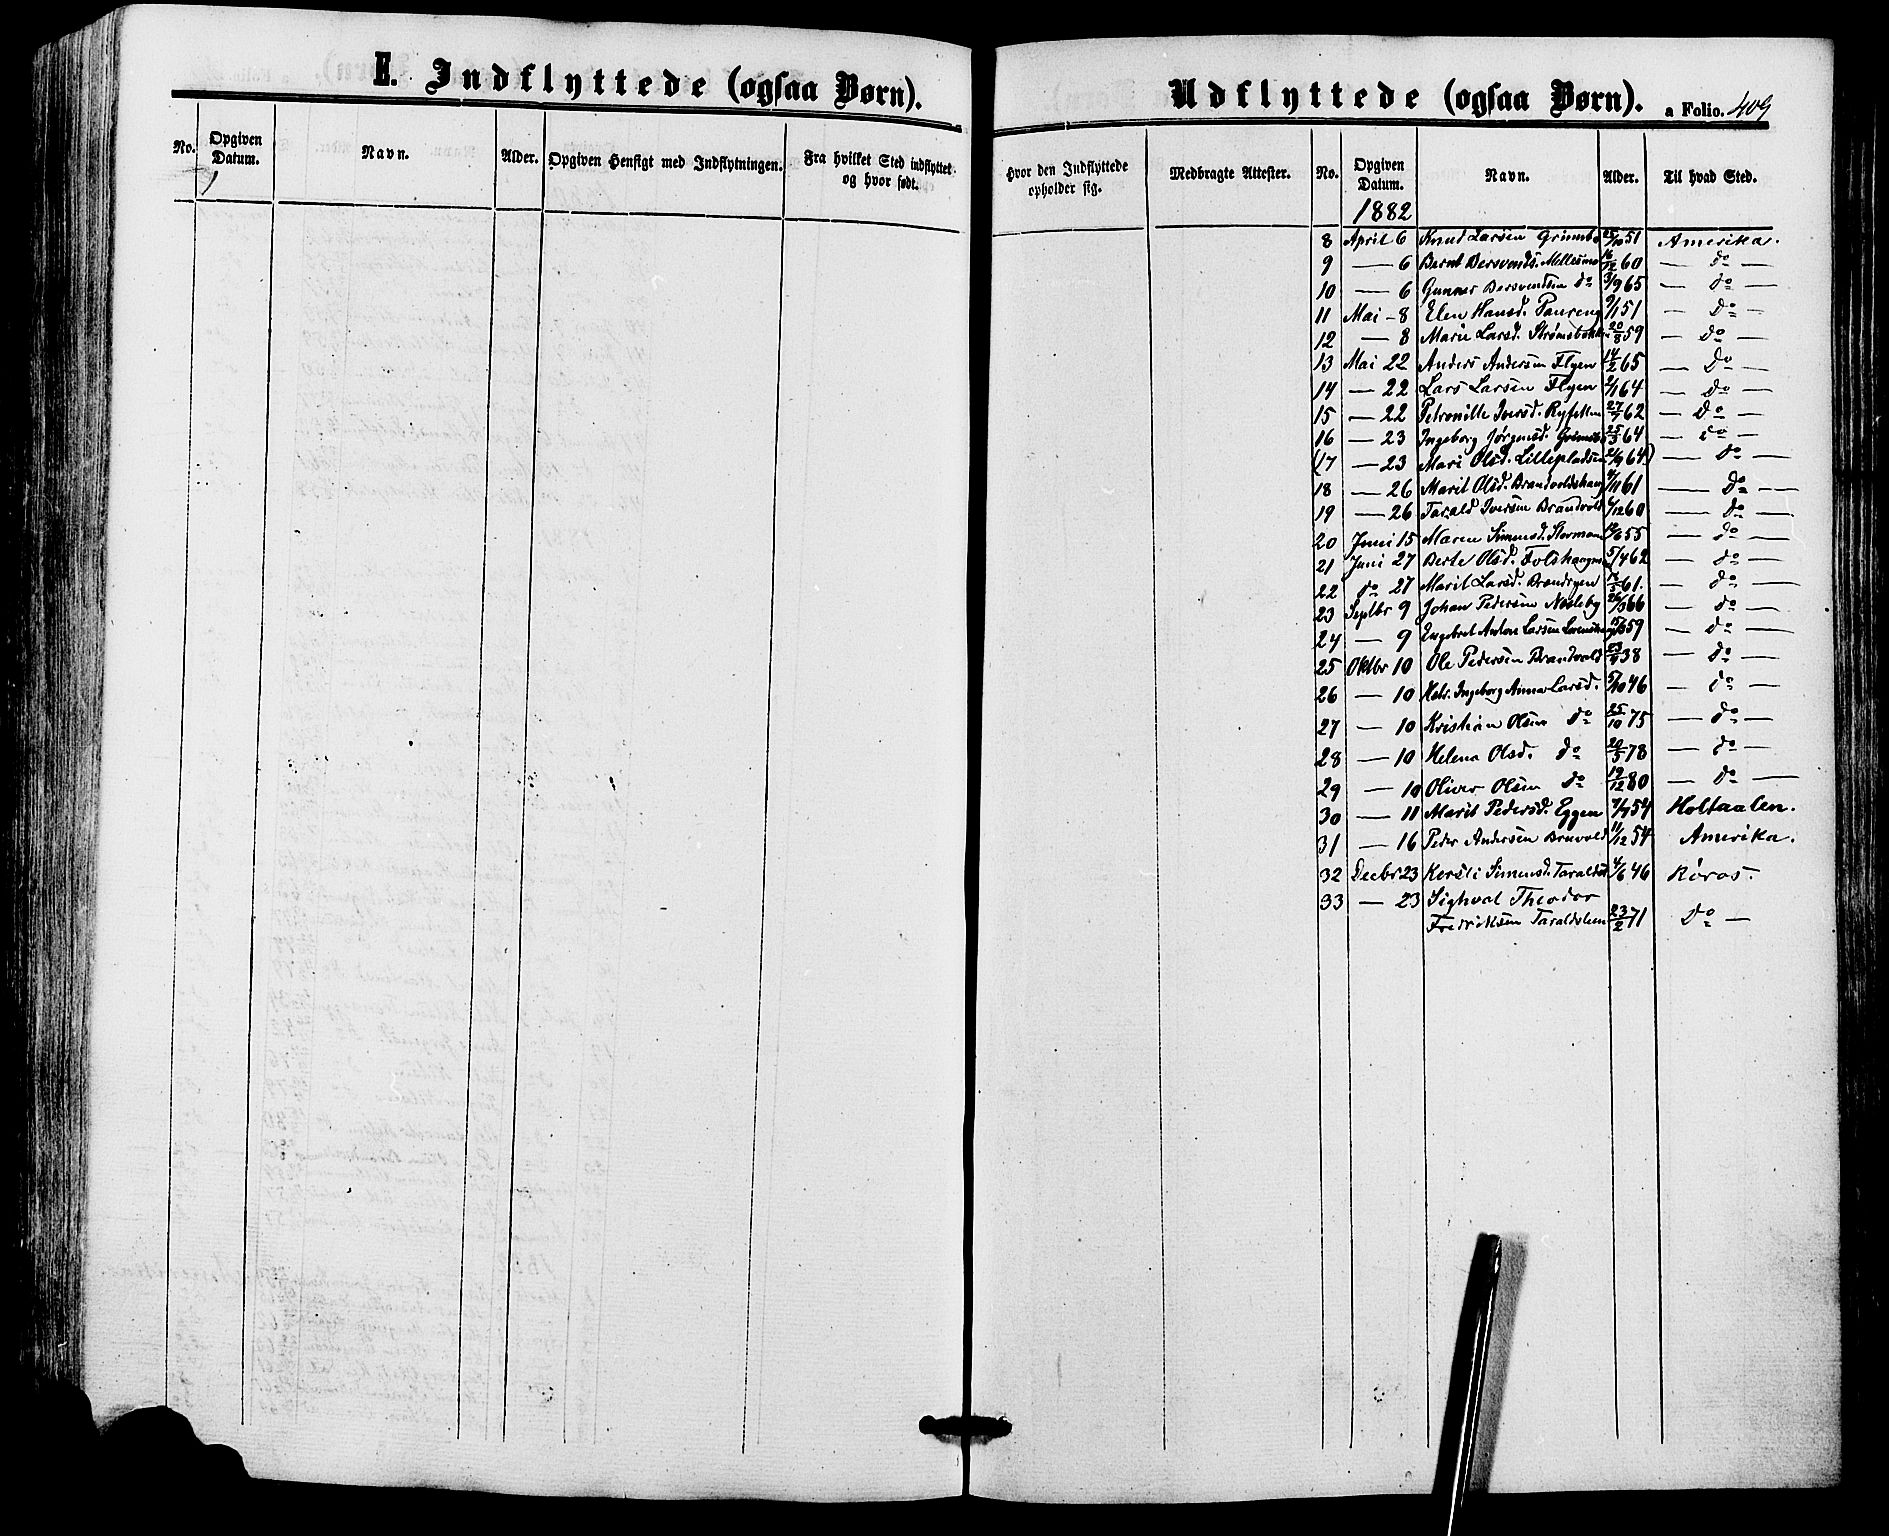 E. Indflyttede (ogsaa Børn).
No. Opgiven Datum. Navn. Alder. Opgiven Hensigt med Indflytningen. Fra hvilket Sted indflyttet og hvor født.
Udflyttede (ogsaa Børn). a Folio. 409
Hvor den Indflyttede opholder sig. Medbragte Attester. No. Opgiven Datum. Navn. Alder. Til hvad Sted.
1882
8 April 6 Knud Larsen 25/10 51 Amerika.
9 — 6 Bernt Bersvends. Mellesmo 16/12 60 — do —
10 — 6 Gunner Bersvendsen do 3/9 65 — do —
11 Mai - 8 Elen Hansd. 9/1 51 — Do —
12 — 8 Marie Larsd. 20/8 59 — do —
13 Mai 22 Anders Andersen Flyen 14/2 65 — Do —
14 — 22 Lars Larsen Flyen 2/1 64 — do —
15 — 22 Petronille Iversd. 27/7 62 — Do —
16 — 23 Ingeborg Jørgensd. 64 — do —
(17 — 23 Mari Olsd. Lillepladsen 64) — do —
18 — 26 Marit Olsd. Brandvoldshaug 61 — Do —
19 — 26 Tarald Iversen Brandvold 60 — Do —
20 Juni 15 Maren Simensd. 55 — do —
21 Juni 27 Berte Olsd. 5/4 62 — do —
22 do 27 Marit Larsd. 61. — do —
23 Septbr 9 Johan Pedersen 66 — do —
24 — 9 Engebret Andere Larsen 59 — do —
25 Oktbr 10 Ole Pedersen Brandvold 38 — do —
26 — 10 Hstr. Ingeborg Anna Larsd. 5/10 46 — do —
27 — 10 Kristian Olsen do 25/10 75 — do —
28 — 10 Helena Olsd. do 20/5 78 — do —
29 — 10 Oliver Olsen do 19/12 80 — do —
30 — 11 Marit Pedersd. Eggen 54 Holtaalen.
31 — 16 Peder Andersen Bruvold 11/12 54 Amerika.
32 Decbr 23 Kersti Simensd. 4/6 46 Røros.
33 — 23 Sighvat Theodor
Fredriksen Taraldslien 23/2 71 Do —